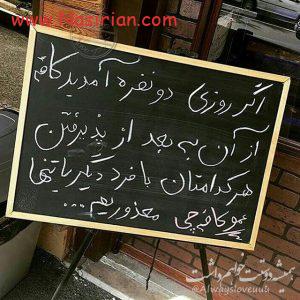 www.Nasirian.com
اگر روزی دو نفره آمدید کافه
از آن به بعد از پذیرفتن
هر کدامتان با فرد دیگر یا تنها
معذوریم...
همیشه دوستت خواهم داشت
@Alwaysloveuu